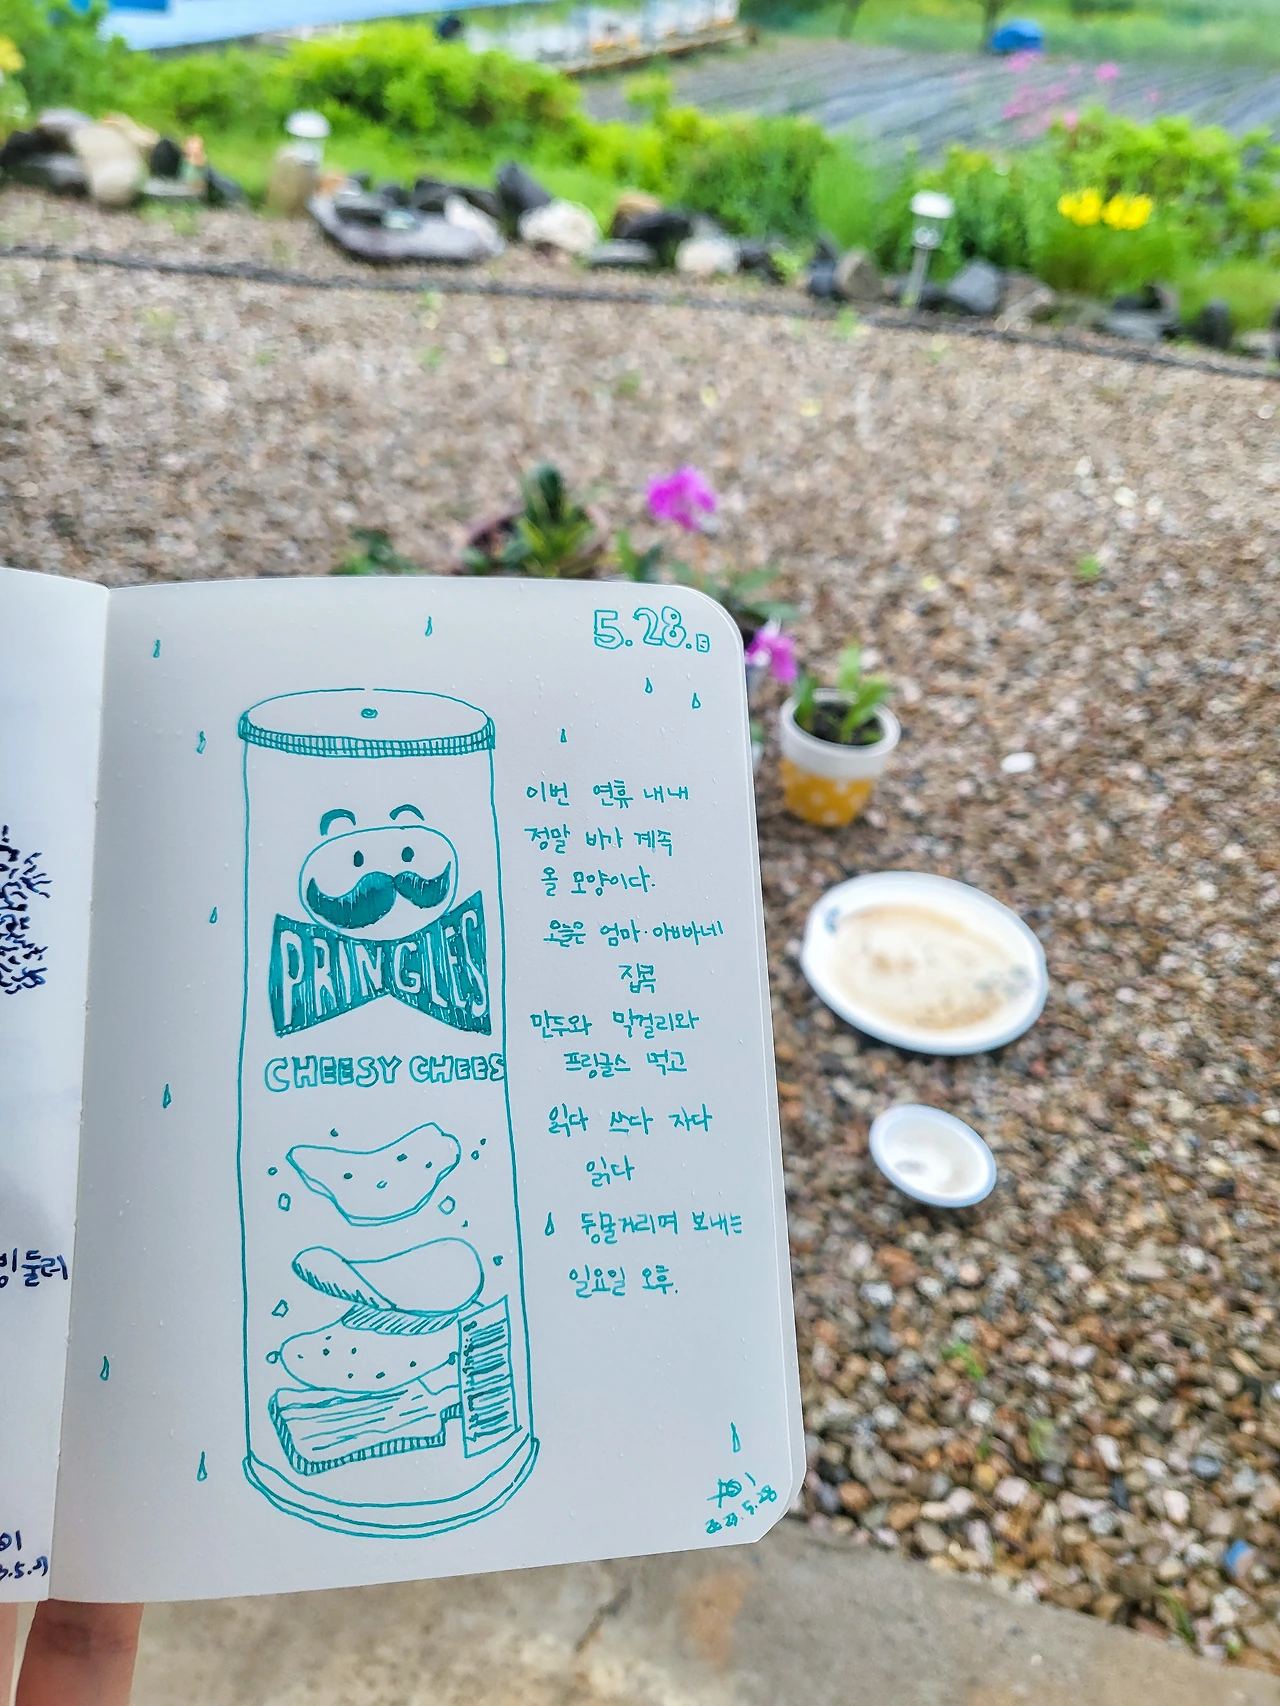 5.28.日
이번 연휴 내내
정말 비가 계속
올 모양이다.
오늘은 엄마·아빠네
집콕
만두와 막걸리와
프링글스 먹고
읽다 쓰다 자다
읽다
뒹굴거리며 보내는
일요일 오후.
PRINGLES
CHEESY CHEES
2023.5.28
빙둘러